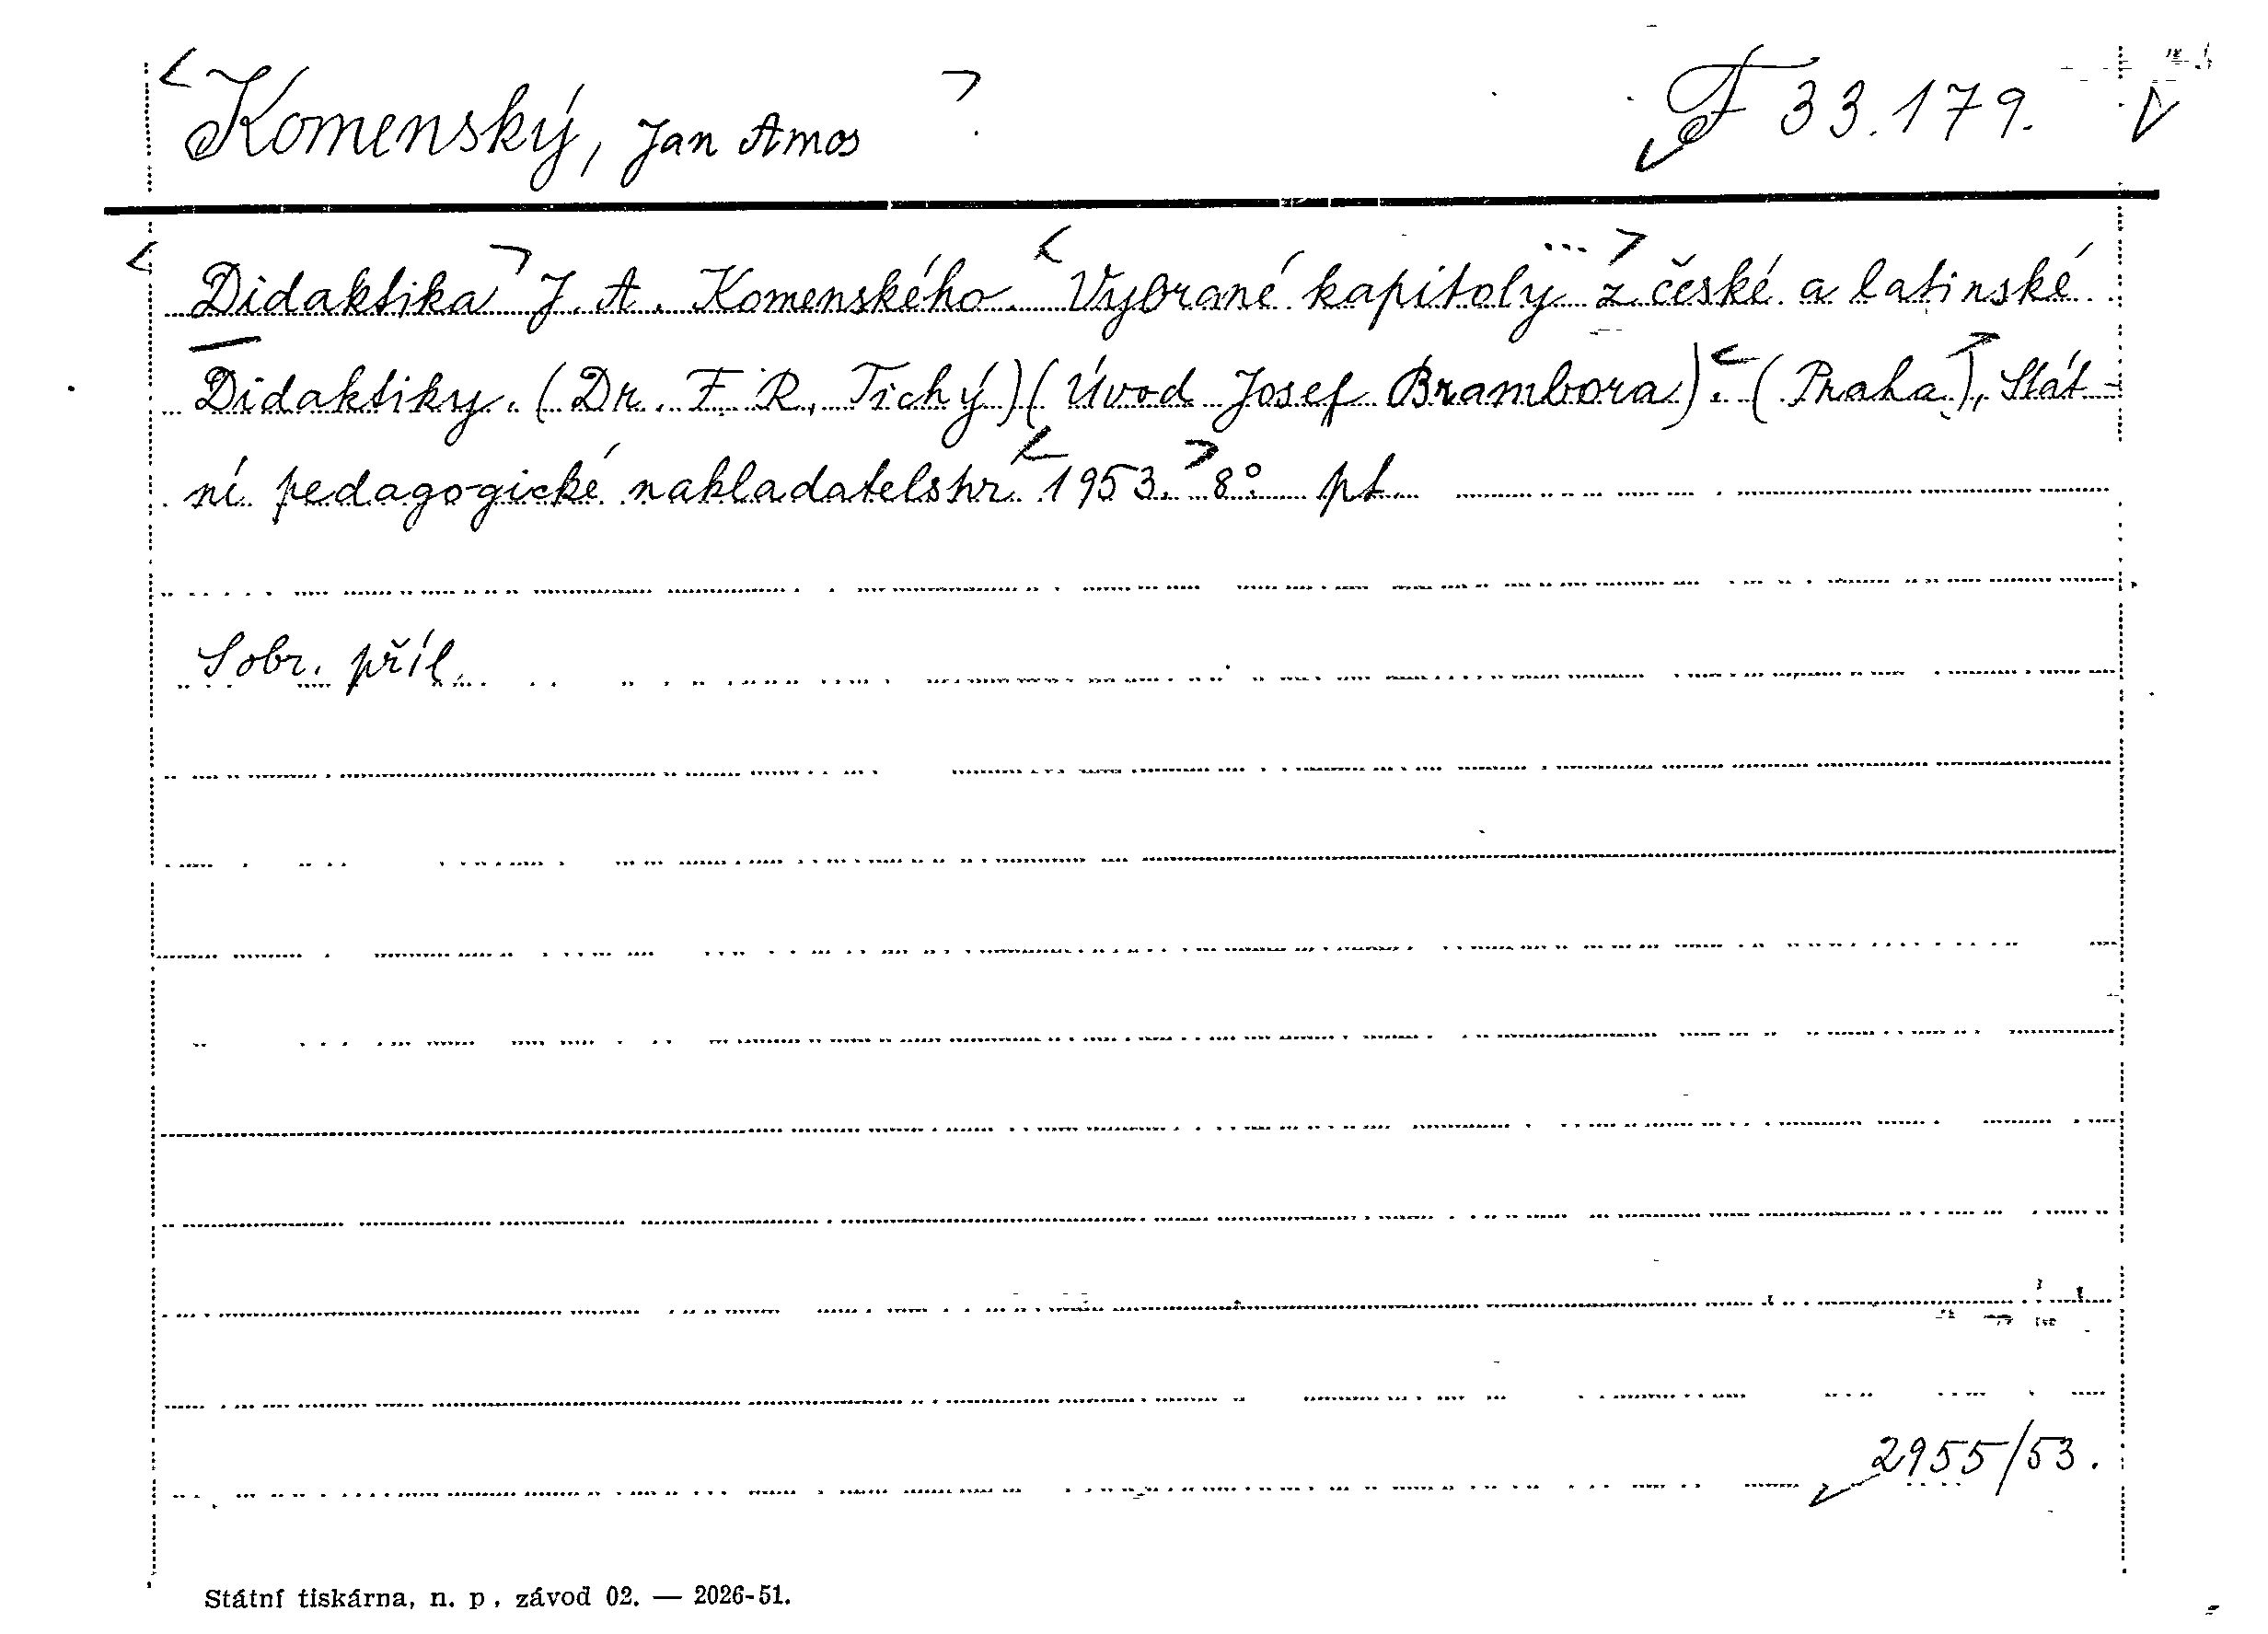 Komenský, Jan Amos F 33.179.
Didaktika J. A. Komenského. Vybrané kapitoly z české a latinské
Didaktiky. (Dr. F. R. Tichý) (Úvod Josef Brambora). (Praha), Stát-
ní pedagogické nakladatelstv. 1953. 8°. pt.
Sobr. příl.
2955/53.
Státní tiskárna, n. p., závod 02. — 2026-51.